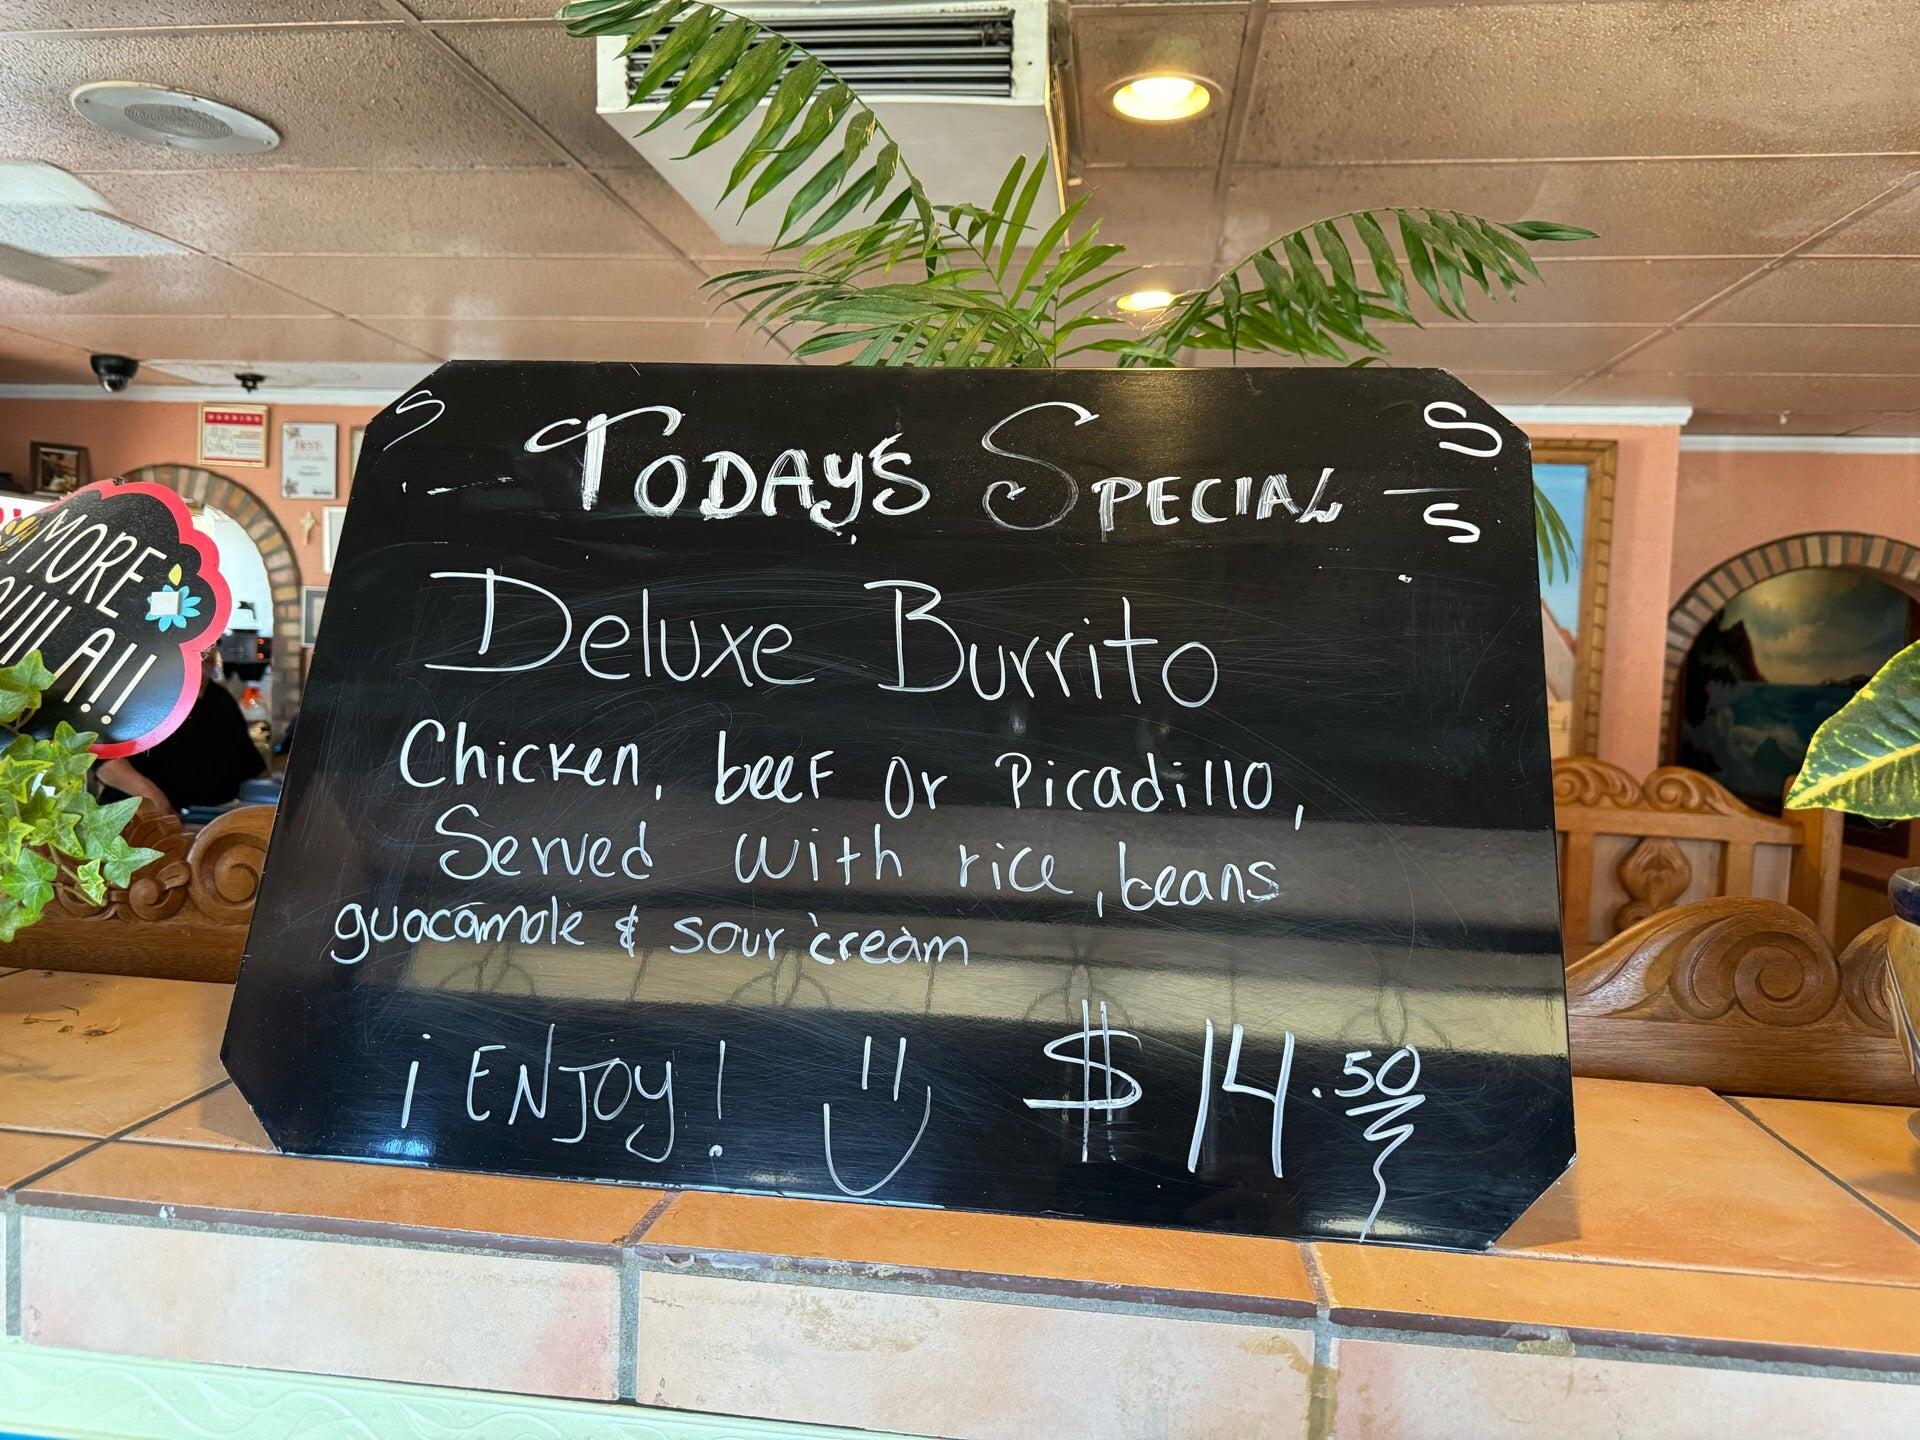 TODAY'S SPECIAL
Deluxe Burrito
Chicken, beef or Picadillo,
Served with rice, beans
guacamole & sour cream
¡ENJOY! $14.50
MORE